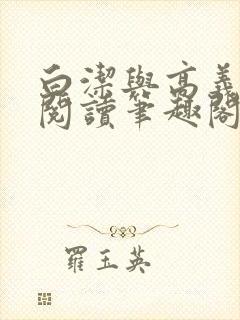 白潔與高義
閱讀筆趣閣
羅玉英